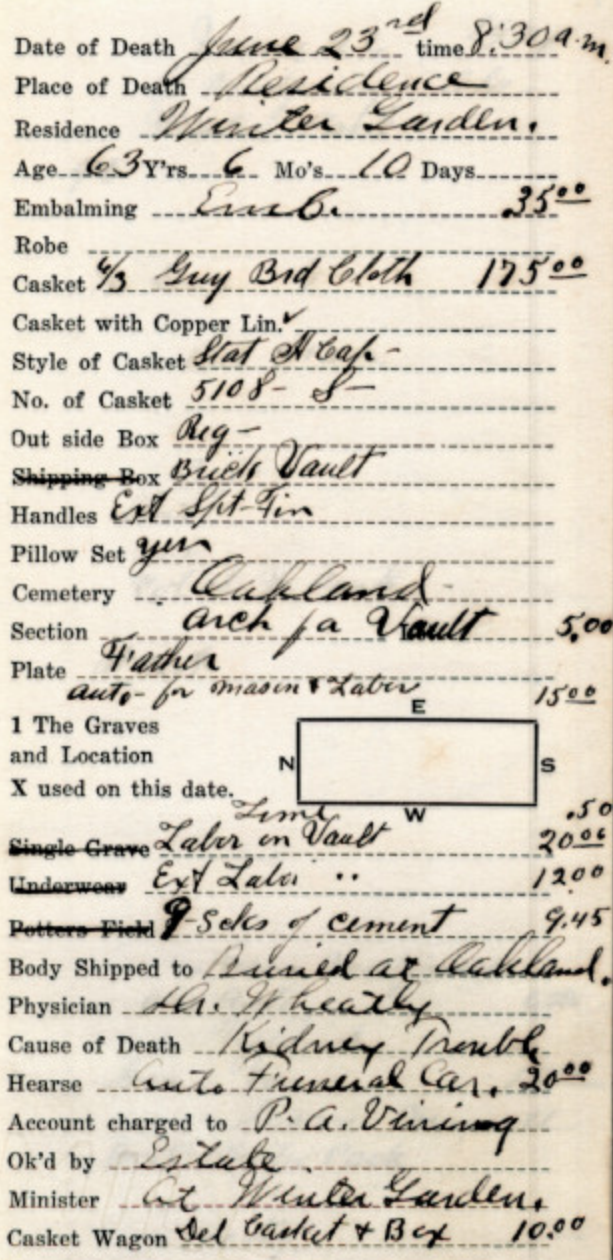 Date of Death June 23rd time 8:30 a.m.
Place of Death Residence
Residence Winter Garden.
Age 63 Y'rs 6 Mo's 10 Days
Embalming Emb. 35.00
Robe
Casket 6/3 Grey Brd Cloth 175.00
Casket with Copper Lin.
Style of Casket Stat H Cap-
No. of Casket 5108- S-
Out side Box Reg-
Shipping Box Brick Vault
Handles Ext
Pillow Set yes
Cemetery Oakland-
Section arch fa Vault 5.00
Plate Father
auto- for mason & Labor 15.00
E
1 The Graves
and Location
N S
X used on this date.
W
Lime .50
Single Grave Labor on Vault 20.00
Underwear Ext Labor " 12.00
Potters Field 9 scks of cement 9.45
Body Shipped to Buried at Oakland.
Physician Dr. Wheatly
Cause of Death Kidney Trouble
Hearse Auto Funeral Car. 20.00
Account charged to P. A. Vining
Ok'd by Estate
Minister at Winter Garden.
Casket Wagon Del Casket & Box 10.00